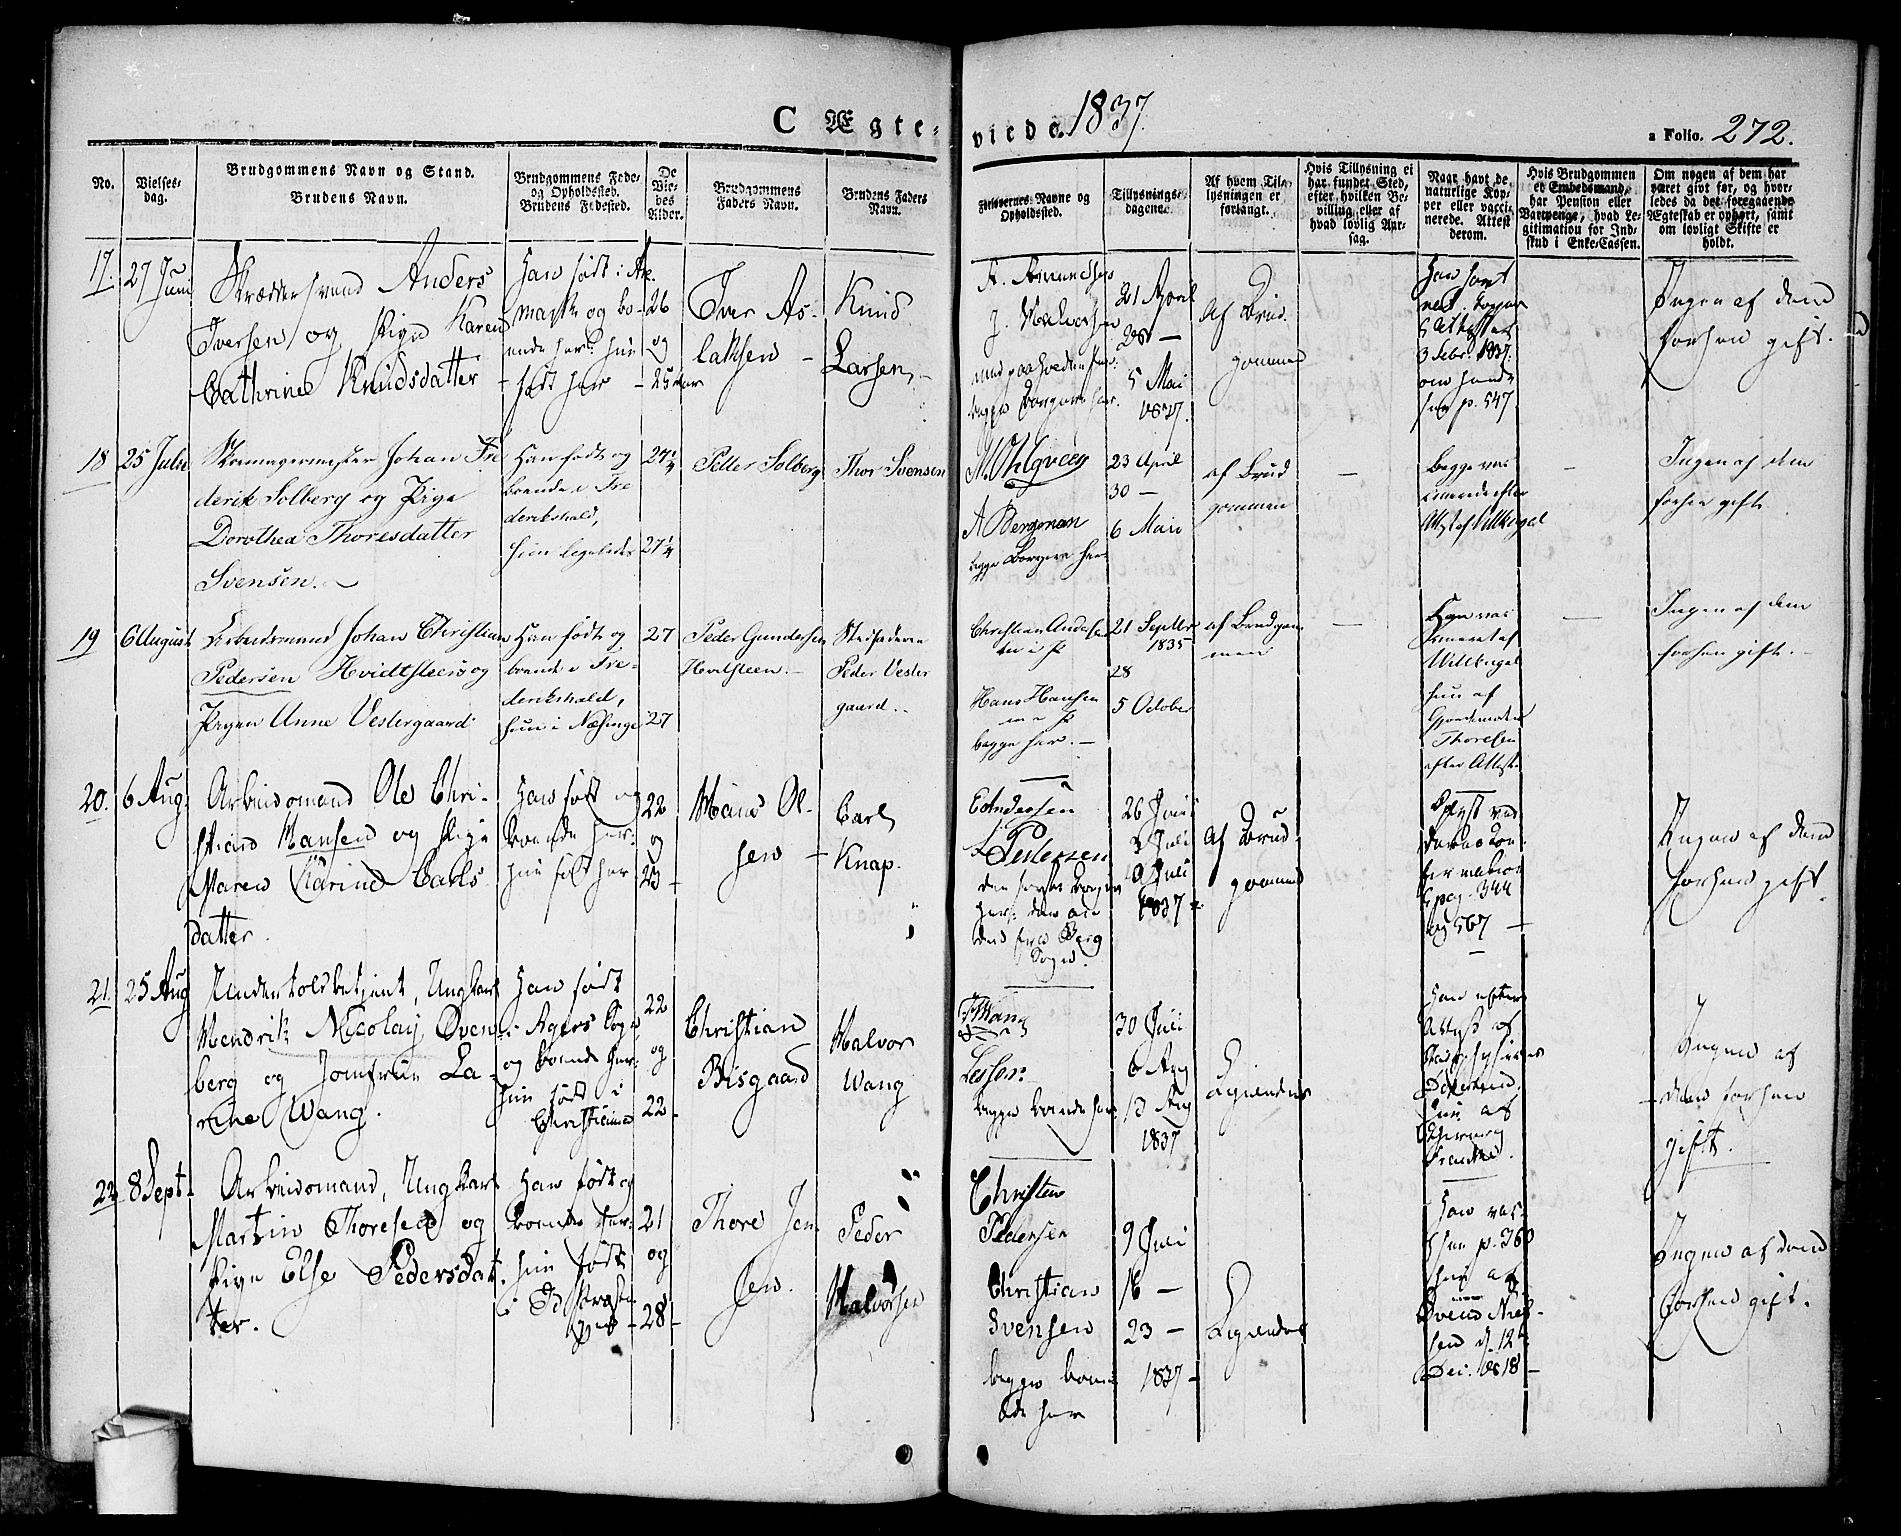 C Ægte-
viede. 1837.
a Folio. 272.
No.
Vielses-
dag.
Brudgommens Navn og Stand.
Brudens Navn.
Brudgommens Føde-
og Opholdssted.
Brudens Fødested.
De
Vie-
des
Alder.
Brudgommens
Faders Navn.
Brudens Faders
Navn.
Forlovernes Navne og
Opholdssted.
Tillysnings-
dagene.
Af hvem Til-
lysningen er
forlangt.
Hvis Tillysning ei
har fundet Sted,
efter hvilken Be-
villing eller af
hvad lovlig Aar-
sag.
Naar havt de
naturlige Kop-
per eller vacci-
nerede. Attest
derom.
Hvis Brudgommen
er Embedsmand,
har Pension eller
Vartpenge, hvad Le-
gitimation for Ind-
skud i Enke-Cassen.
Om nogen af dem har
været givt før, og hvor-
ledes da det foregaaende
Ægteskab er ophørt, samt
om lovligt Skifte er
holdt.
17. 27 Juni
Skræddersvend Anders
Iversen og Pige Karen
Cathrine Knudsdatter -
Han født i
og bo-
ende her: hun
født her -
26
og
25 Aar
Iver As-
laksen -
Knud
Larsen, -
A. Amundsen
J. Halvorsen
begge Borgere her.
21 April
28 -
5 Mai
1837.
Af Brud-
gommen
Han havt
nat. Kopper
3 Febr. 1837.
p. 547
Ingen af dem
forhen gift.
18 25 Julii
Skomagermester Johan Fre
derik Solberg og Pige
Dorothea Thoresdatter
Svensen. -
Han født og
boende i Fre
derikshald,
hun ligeledes
27¼
27¼
Petter Solberg
Thor Svensen
M Ohlgreen
A Bergman
begge Borgere her
23 April
30 -
6 Maii
af Brud
gommen
-
Begge vac
cinerede efter
Attest af Villkugel
-
Ingen af dem
forhen gift.
19 6 August
Arbeidsmand Johan Christian
Pedersen Hvidtsteen og
Pigen Anne Vestergaard
Han født og
boende i Fre-
derikshald,
hun i Næsinge
27
27
Peder Gundersen
Hvidsteen. -
Stedfaderen
Peder Vester
gaard. -
Christian Andersen
Hans Hansen
begge her. -
21 Septbr
1835
28
5 October
af Brudgom
men
-
Han vac
cineret af
Willkugel
hun af
Gjordemoder
Thoresen
efter Attest.
-
Ingen af dem
forhen gift. -
20. 6 Aug.
Arbeidsmand Ole Chri-
stian Hansen og Pige
Maren Karine Carls-
datter.
Han født og
boende her:
hun født her
22
og
23 -
Hans Ol-
sen -
Carl
Knap.
C Andersen
L Pedersen
den første Borger
her: den an
den fra Berg
Sogn.
26 Juni
3 Juli
9 Juli
1837 -
Af Brud-
gommen
deres Con-
firmation
pag. 344
og 567 -
Ingen af dem
forhen gift.
21. 25 Aug
Undertoldbetjent, Ungkarl
Hendrik Nicolay Oven
berg og Jomfrue La-
rine Wang.
Han født
i Agers Sogn
og boende her:
hun født i
Christiania
22
og
22 -
Christian
Bisgaard
Halvor
Wang
Wang
Lesser
begge boende her
30 Juli
6 Aug
13 Aug
1837
Ligeledes
Han efter
Attest af
Hun af
Ingen af
dem forhen
gift.
22. 8 Sept.
Arbeidsmand, Ungkarl
Martin Thoresen og
Pige Else Pedersdat-
ter.
Han født og
boende her:
hun født
i Id Præste
gjeld -
21
og
28 -
Thore Jen
sen.
Peder
Halvorsen
Christen
Pedersen
Christian
Svensen
begge boen-
de her
9 Juli
16 -
23 -
1837 -
Ligeledes
Han vac.
p. 360
hun af
Svend Niel-
sen d. 12te
Dec. 1818 -
Ingen af dem
forhen gift.